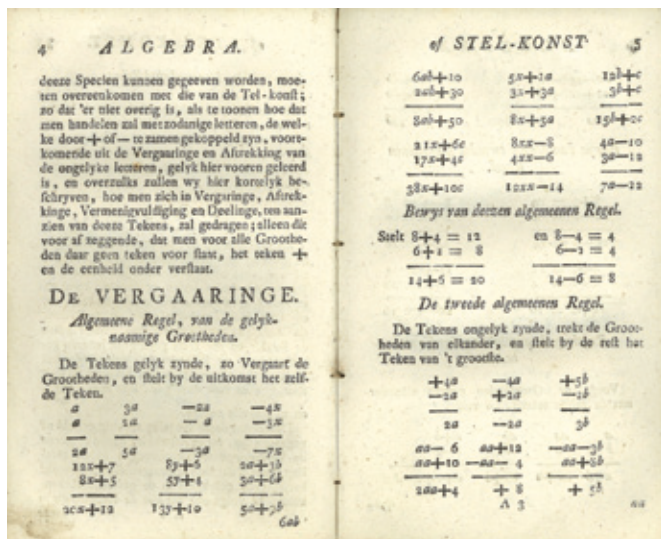 4 ALGEBRA.
deeze Specien kunnen gegeeven worden, moe-
ten overeenkomen met die van de Tel-konst;
zo dat 'er niet overig is, als te toonen hoe dat
men handelen zal met zodanige letteren, de wel-
ke door + of — te zamen gekoppeld zyn, voort-
komende uit de Vergaaringe en Aftrekking van
de ongelyke letteren, gelyk hier vooren geleerd
is, en overzulks zullen wy hier kortelyk be-
schryven, hoe men zich in Vergaringe, Aftrek-
kinge, Vermenigvuldiging en Deelinge, ten aan-
zien van deeze Tekens, zal gedragen; alleen die
voor af zeggende, dat men voor alle Groothe-
den daar geen teken voor staat, het teken +
en de eenheid onder verstaat.
DE VERGAARINGE.
Algemeene Regel, van de gelyk-
naamige Grootheden.
De Tekens gelyk zynde, zo Vergaart de
Grootheden, en stelt by de uitkomst het zelf-
de Teken.
a 3a —2a —4x
a 2a — a —3x
2a 5a —3a —7x
12x+7 8y+6 2a+3b
8x+5 5y+4 3a+6b
20x+12 13y+10 5a+9b
6ab
of STEL-KONST 5
6ab+10 5x+1a 12b+c
2ab+30 3x+3a 3b+c
8ab+50 8x+5a 15b+2c
21x+6c 8xx—8 4a—10
17x+4c 4xx—6 3a—12
38x+10c 12xx—14 7a—22
Bewys van deezen algemeenen Regel.
Stelt 8+4 = 12 en 8—4 = 4
6+2 = 8 6—2 = 4
14+6 = 20 14—6 = 8
De tweede algemeenen Regel.
De Tekens ongelyk zynde, trekt de Groot-
heden van elkander, en stelt by de rest het
Teken van 't grootste.
+4a —4a +5b
—2a +2a —2b
2a —2a 3b
aa— 6 aa+12 —aa—3b
aa+10 —aa— 4 aa+8b
2aa+4 + 8 + 5b
A 3 aa